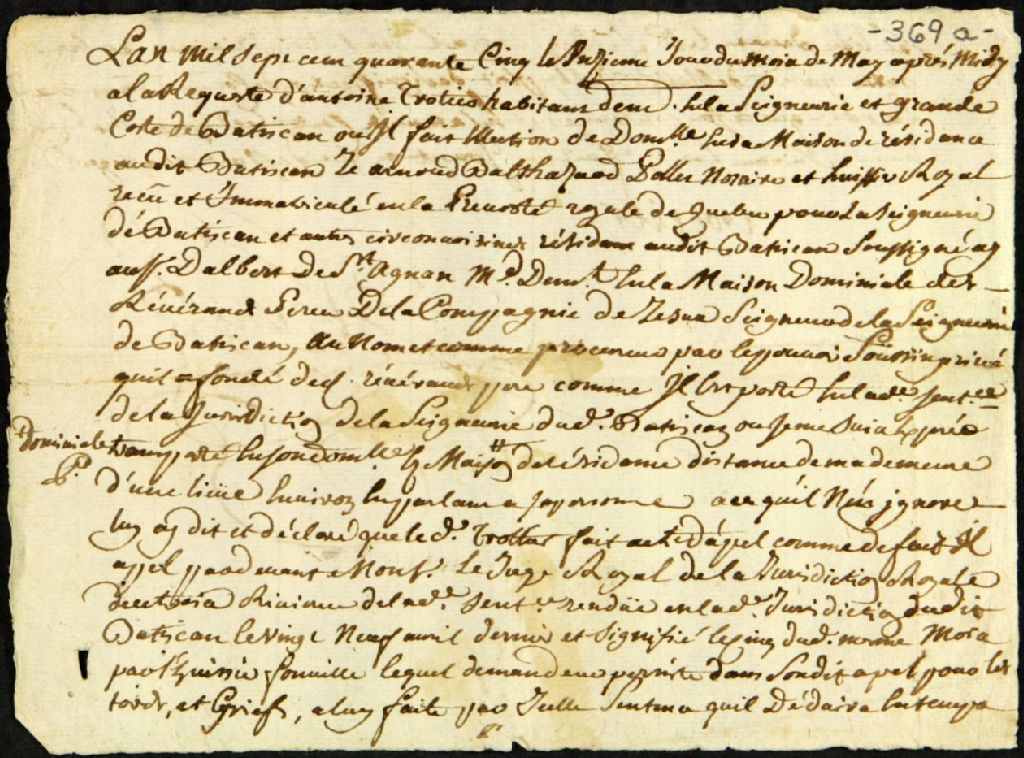 -369 a-
Lan mil sept cent quarante Cinq le Jour du mois de May après Midy
a la Requeste d'antoine Trotier habitant dem.t En la Seigneurie et grande
Coste de Batiscan ou Il fait Election de Dom.lle En sa Maison de résidance
audit Batiscan Je arnoud Balthazard Pollet Notaire et huissier Royal
recu et Immatriculé en la Prevosté royale de Quebec pour la Seigneurie
de Batiscan et autres circonvoisines résidant audit Batiscan Soussigné ay
au Sr. Dalbert de St Agnan M.d Dem.t En la Maison Dominiale des
Révérands Peres De la Compagnie de Jesus Seigneurs de la Seigneurie
de Batiscan, au Nom et comme procureur par le pouvoir Sous sin privé
quil a fondé desd. révérands pere comme Il Est porté En lad.e Sent.ce
de la Jurisdiction de la Seigneurie dud. Batiscan ou Je me Suis Exprés
Dominiale transporté En son dom.lle Et Maison de résidence distance de ma demeure
P.
D'une liüe Environ En parlant a sa personne a ce qu'il N'en jgnore
luy ay dit et déclaré que le d. Trottier fait acte d'apel comme de fait Il
apel pardevant Mons.r le Juge Royal de la Jurisdiction Royale
des trois Rivieres de lad.e Sent.e rendüe en lad.e Jurisdiction dudit
Batiscan le vingt Neuf avril dernier et Signifié le cinq dud. mois
par lequel demandeur persiste dans Son dit apel pour les
torts, et Griefs, a luy faite par Icelle Sentence quil Déduira En temps